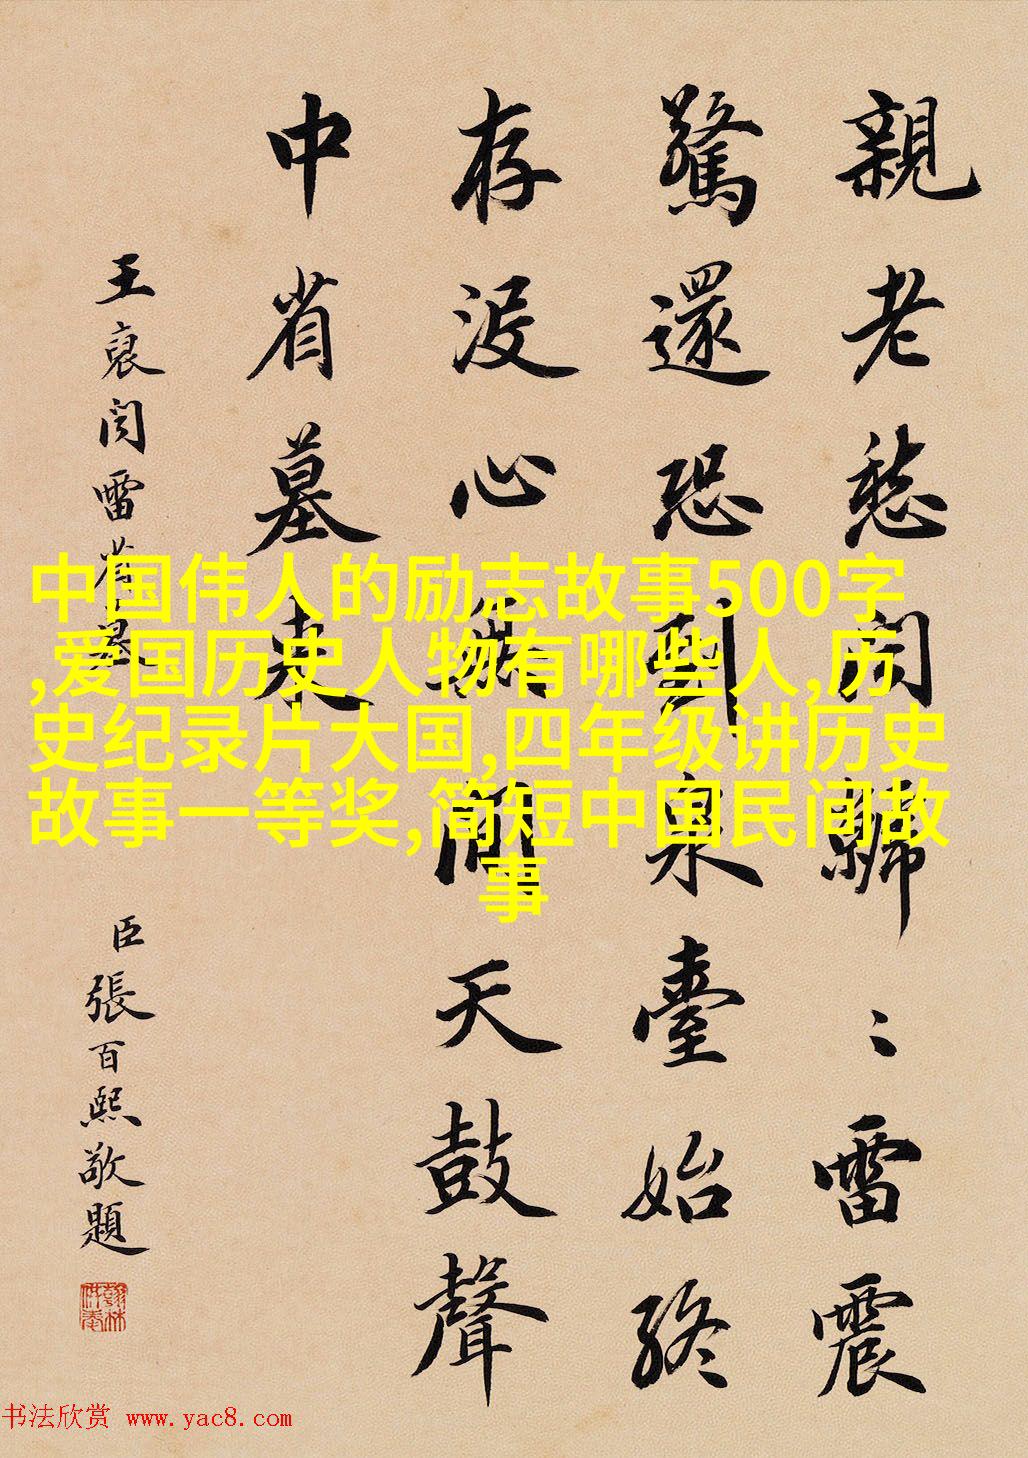 親老愁聞歸〻雷震
驚還恐到泉臺始終
存沒心無間天鼓聲
中省墓来
王裒聞雷省墓
臣張百熙敬題
翰林供奉
中国伟人的励志故事500字
,爱国历史人物有哪些人,历
史纪录片大国,四年级讲历史
故事一等奖,简短中国民间故
事
书法欣赏 www.yac8.com